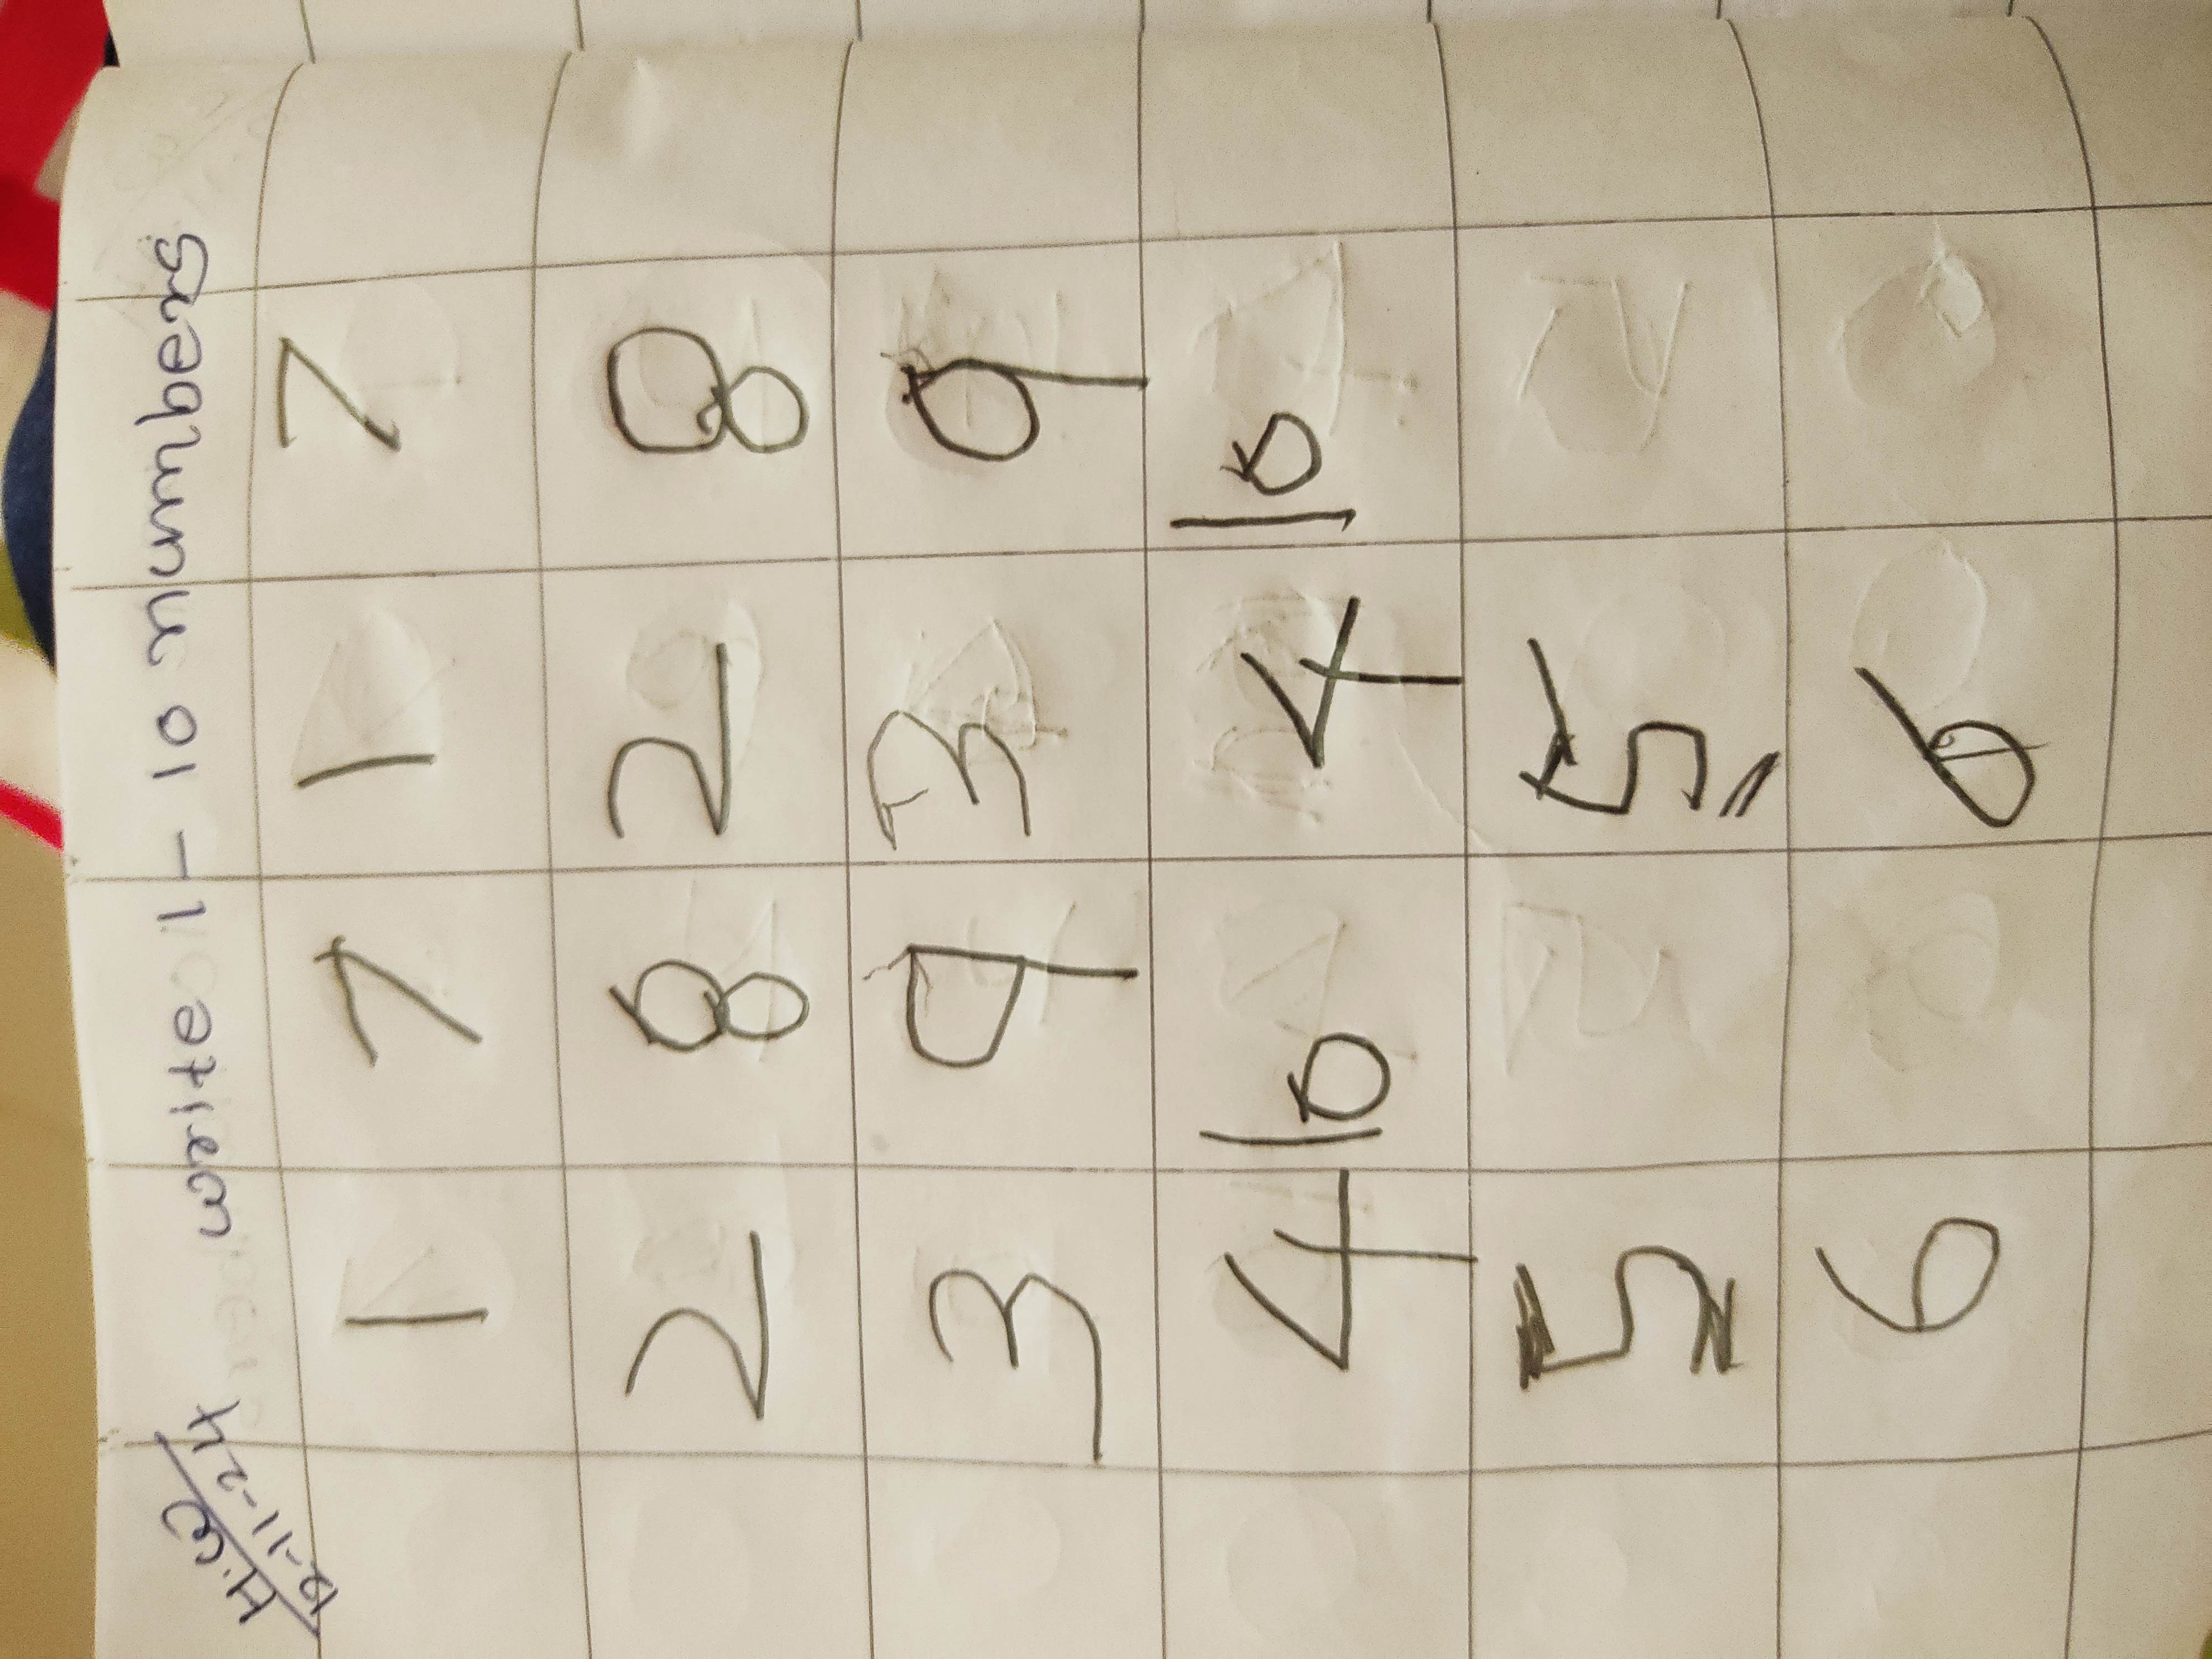 H.W write 1 - 10 numbers
1 7 1 7
2 8 2 8
3 9 3 9
4 10 4 10
5 5
6 6